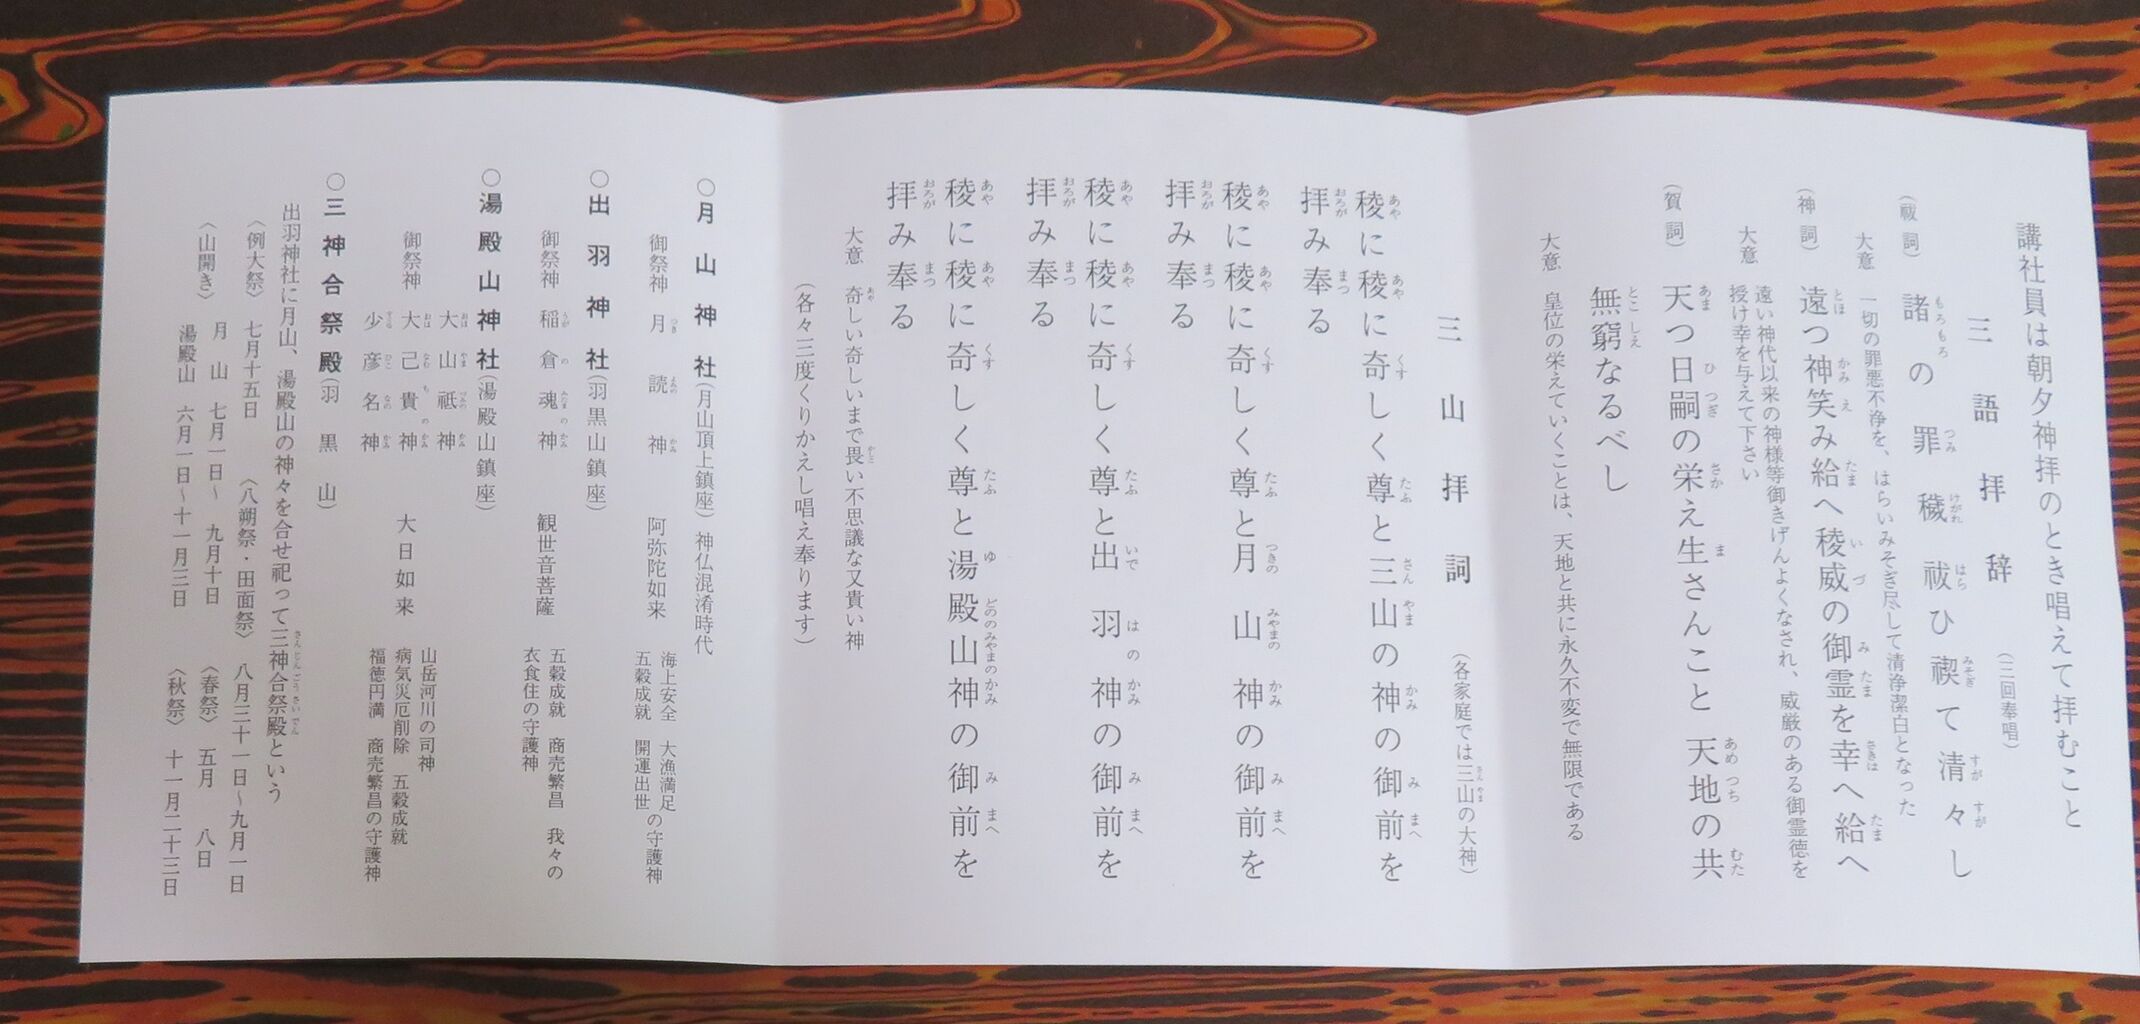 講社員は朝夕神拝のとき唱えて拝むこと
三語拝辞（三回奉唱）
（祓詞）諸の罪穢祓ひ禊て清々し
大意　一切の罪悪不浄を、はらいみそぎ尽して清浄潔白となった
（神詞）遠つ神笑み給へ稜威の御霊を幸へ給へ
大意　遠い神代以来の神様等御きげんよくなされ、威厳のある御霊徳を
授け幸を与えて下さい
（賀詞）天つ日嗣の栄え生さんこと　天地の共
無窮なるべし
大意　皇位の栄えていくことは、天地と共に永久不変で無限である
三山拝詞（各家庭では三山の大神）
稜に稜に奇しく尊と三山の神の御前を
拝み奉る
稜に稜に奇しく尊と月山神の御前を
拝み奉る
稜に稜に奇しく尊と出羽神の御前を
拝み奉る
稜に稜に奇しく尊と湯殿山神の御前を
拝み奉る
大意　奇しい奇しいまで畏い不思議な又貴い神
（各々三度くりかえし唱え奉ります）
〇月山神社（月山頂上鎮座）神仏混淆時代
御祭神　月読神　阿弥陀如来　海上安全　大漁満足
五穀成就　開運出世の守護神
〇出羽神社（羽黒山鎮座）
御祭神　稲倉魂神　観世音菩薩　五穀成就　商売繁昌　我々の
衣食住の守護神
〇湯殿山神社（湯殿山鎮座）
大山祗神　山岳河川の司神
御祭神　大己貴神　大日如来　病気災厄削除　五穀成就
少彦名神　福徳円満　商売繁昌の守護神
〇三神合祭殿（羽黒山）
出羽神社に月山、湯殿山の神々を合せ祀って三神合祭殿という
〈例大祭〉七月十五日　〈八朔祭・田面祭〉八月三十一日〜九月一日
〈山開き〉月山　七月一日〜九月十日　〈春祭〉五月八日
湯殿山　六月一日〜十一月三日　〈秋祭〉十一月二十三日